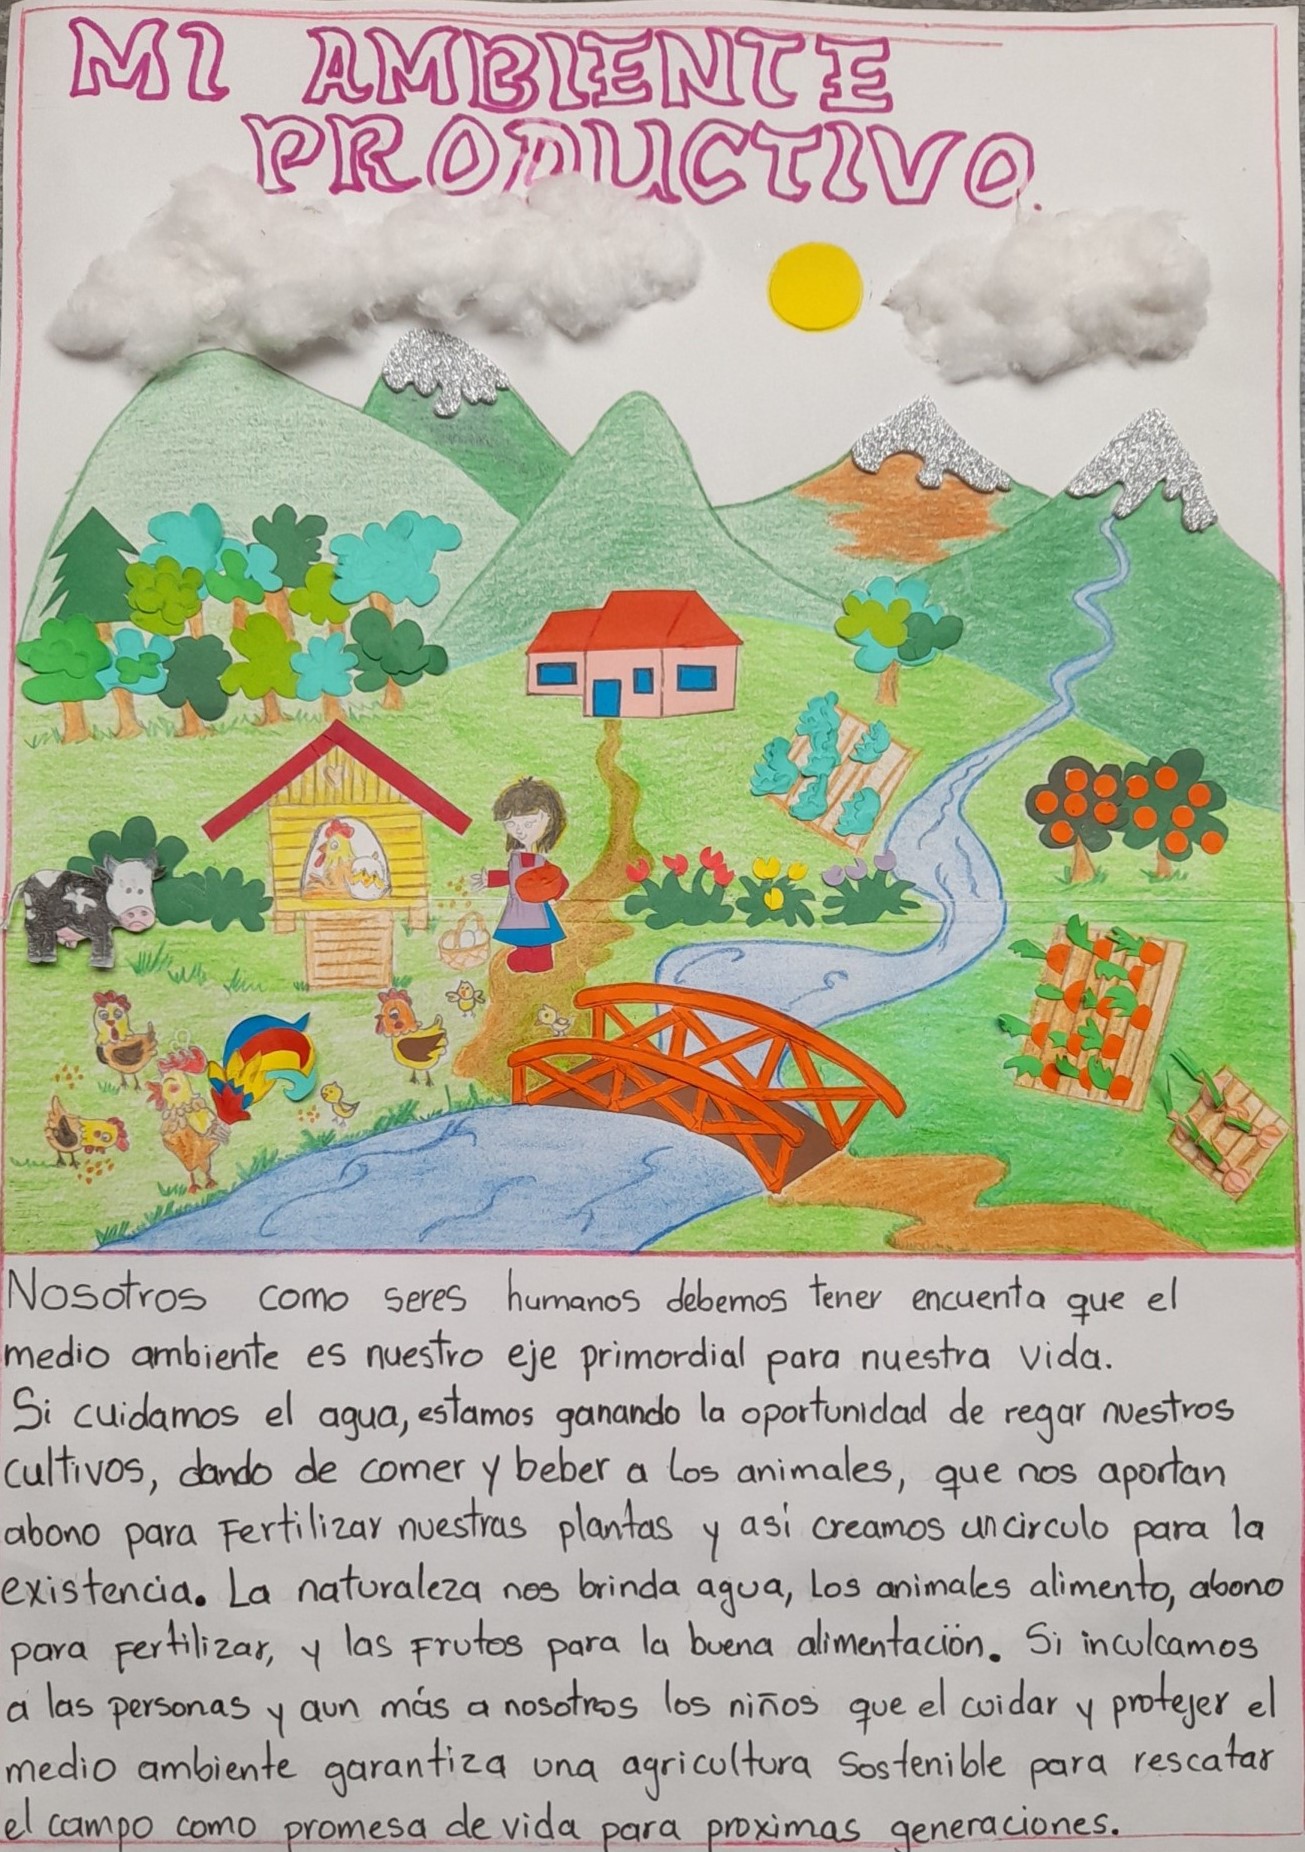 MI AMBIENTE
PRODUCTIVO.
Nosotros como seres humanos debemos tener encuenta que el
medio ambiente es nuestro eje primordial para nuestra vida.
Si cuidamos el agua, estamos ganando la oportunidad de regar nuestros
cultivos, dando de comer y beber a los animales, que nos aportan
abono para Fertilizar nuestras plantas y así creamos un circulo para la
existencia. La naturaleza nos brinda agua, los animales alimento, abono
para Fertilizar, y las Frutos para la buena alimentación. Si inculcamos
a las personas y aun más a nosotros los niños que el cuidar y protejer el
medio ambiente garantiza una agricultura sostenible para rescatar
el campo como promesa de vida para proximas generaciones.